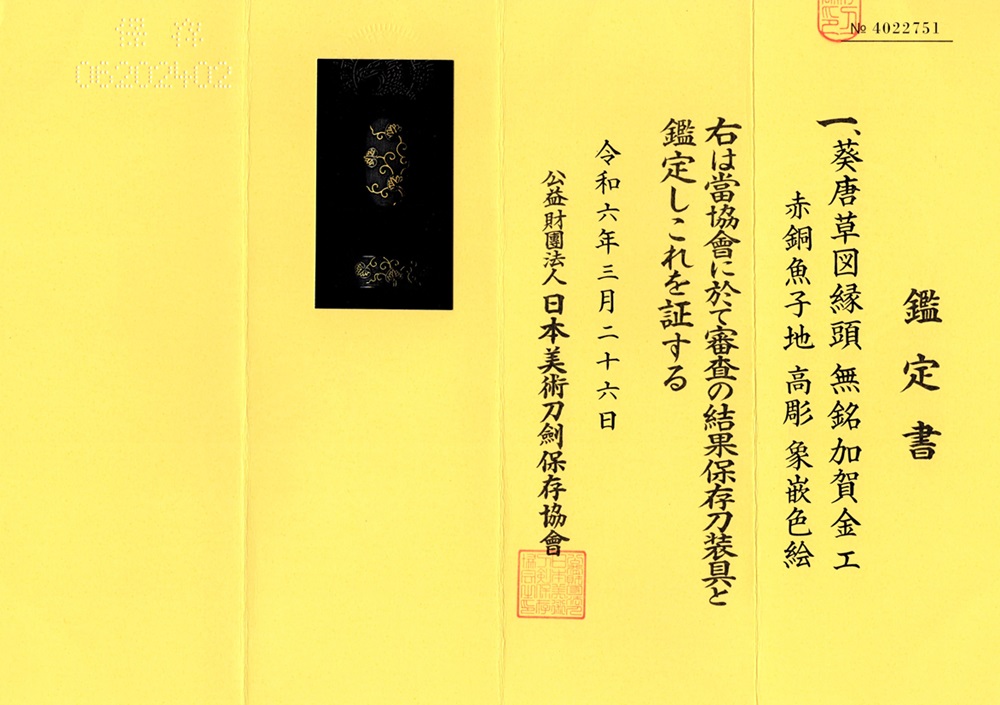 № 4022751
鑑定書
一、葵唐草図縁頭 無銘加賀金工
赤銅魚子地 高彫 象嵌色絵
右は當協會に於て審査の結果保存刀装具と
鑑定しこれを証する
令和六年三月二十六日
公益財團法人 日本美術刀劍保存協會
保存
06202402